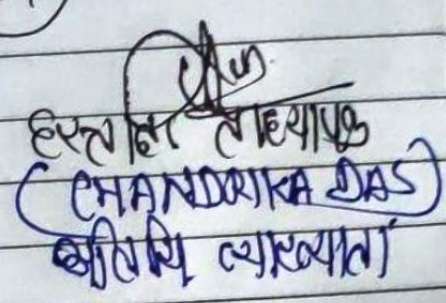 हस्ता० प्राध्यापक
(CHANDRIKA DAS)
अतिथि व्याख्याता